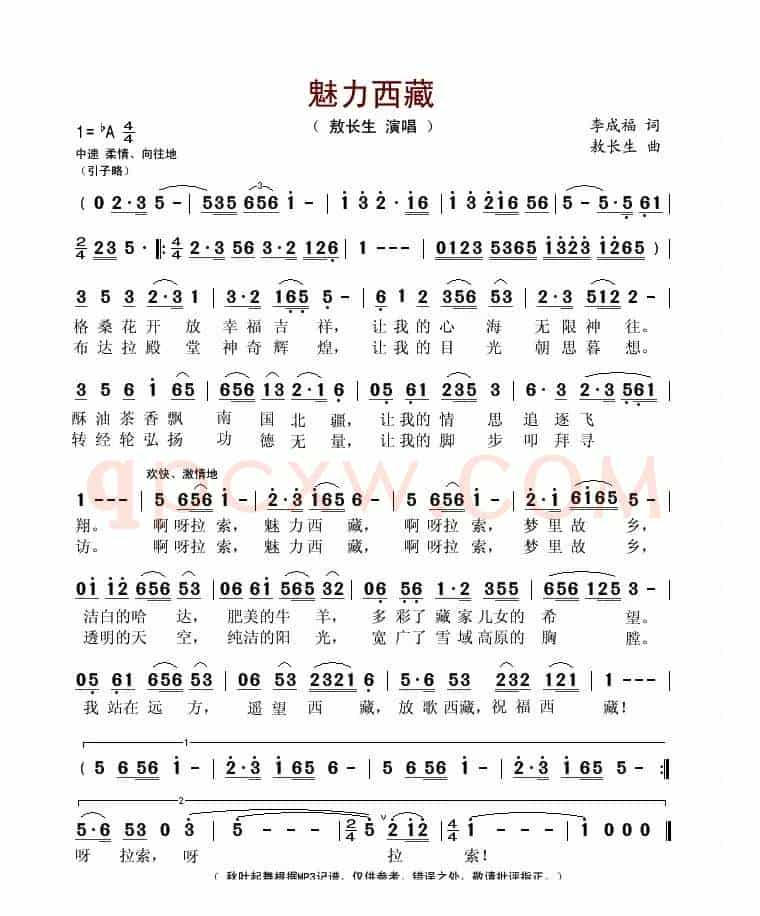 魅力西藏
1=♭A 4/4 （敖长生 演唱） 李成福 词
中速 柔情、向往地 敖长生 曲
（引子略）
（ 0 2·3 5 - | 535 656 i - | i 3 2·i6 | i3 2i6 56 | 5 - 5·5 61 |
2/4 23 5 |: 4/4 2·3 56 3·2 126 | 1 - - - | 0123 5365 1323 1265 ）|
3 5 3 2·3 1 | 3·2 165 5 - | 6 1 2 356 53 | 2·3 512 2 - |
格桑花开放幸福吉祥，让我的心海无限神往。
布达拉殿堂神奇辉煌，让我的目光朝思暮想。
3 5 6 i 65 | 656 13 2·1 6 | 05 61 235 3 | 6·3 2·3 561 |
酥油茶香飘南国北疆，让我的情思追逐飞
转经轮弘扬功德无量，让我的脚步叩拜寻
欢快、激情地
1 - - - | 5 656 i - | 2·3 i - | 5 656 i - | 2·i 6i65 |
翔。啊呀拉索，魅力西藏，啊呀拉索，梦里故乡，
访。啊呀拉索，魅力西藏，啊呀拉索，梦里故乡，
0i i2 656 53 | 06 61 565 32 | 06 56 1·2 355 | 656 125 3 - |
洁白的哈达，肥美的牛羊，多彩了藏家儿女的希望。
透明的天空，纯洁的阳光，宽广了雪域高原的胸膛。
05 61 656 53 | 06 53 2321 6 | 53 653 232 121 | 1 - - - |
我站在远方，遥望西藏，放歌西藏，祝福西藏！
1
（ 5 656 i - | 2·3 i - | 5 656 i - | 2·3 i65 5 - :|
2
5·6 53 0 3 | 5 - - - | 2/4 5 ∨ 2 i2 | 4/4 1 - - - | 1 0 0 0 ‖
呀拉索，呀拉索！
（ 秋叶起舞根据MP3记谱，仅供参考，错误之处，敬请批评指正。）
qpcxw.COM